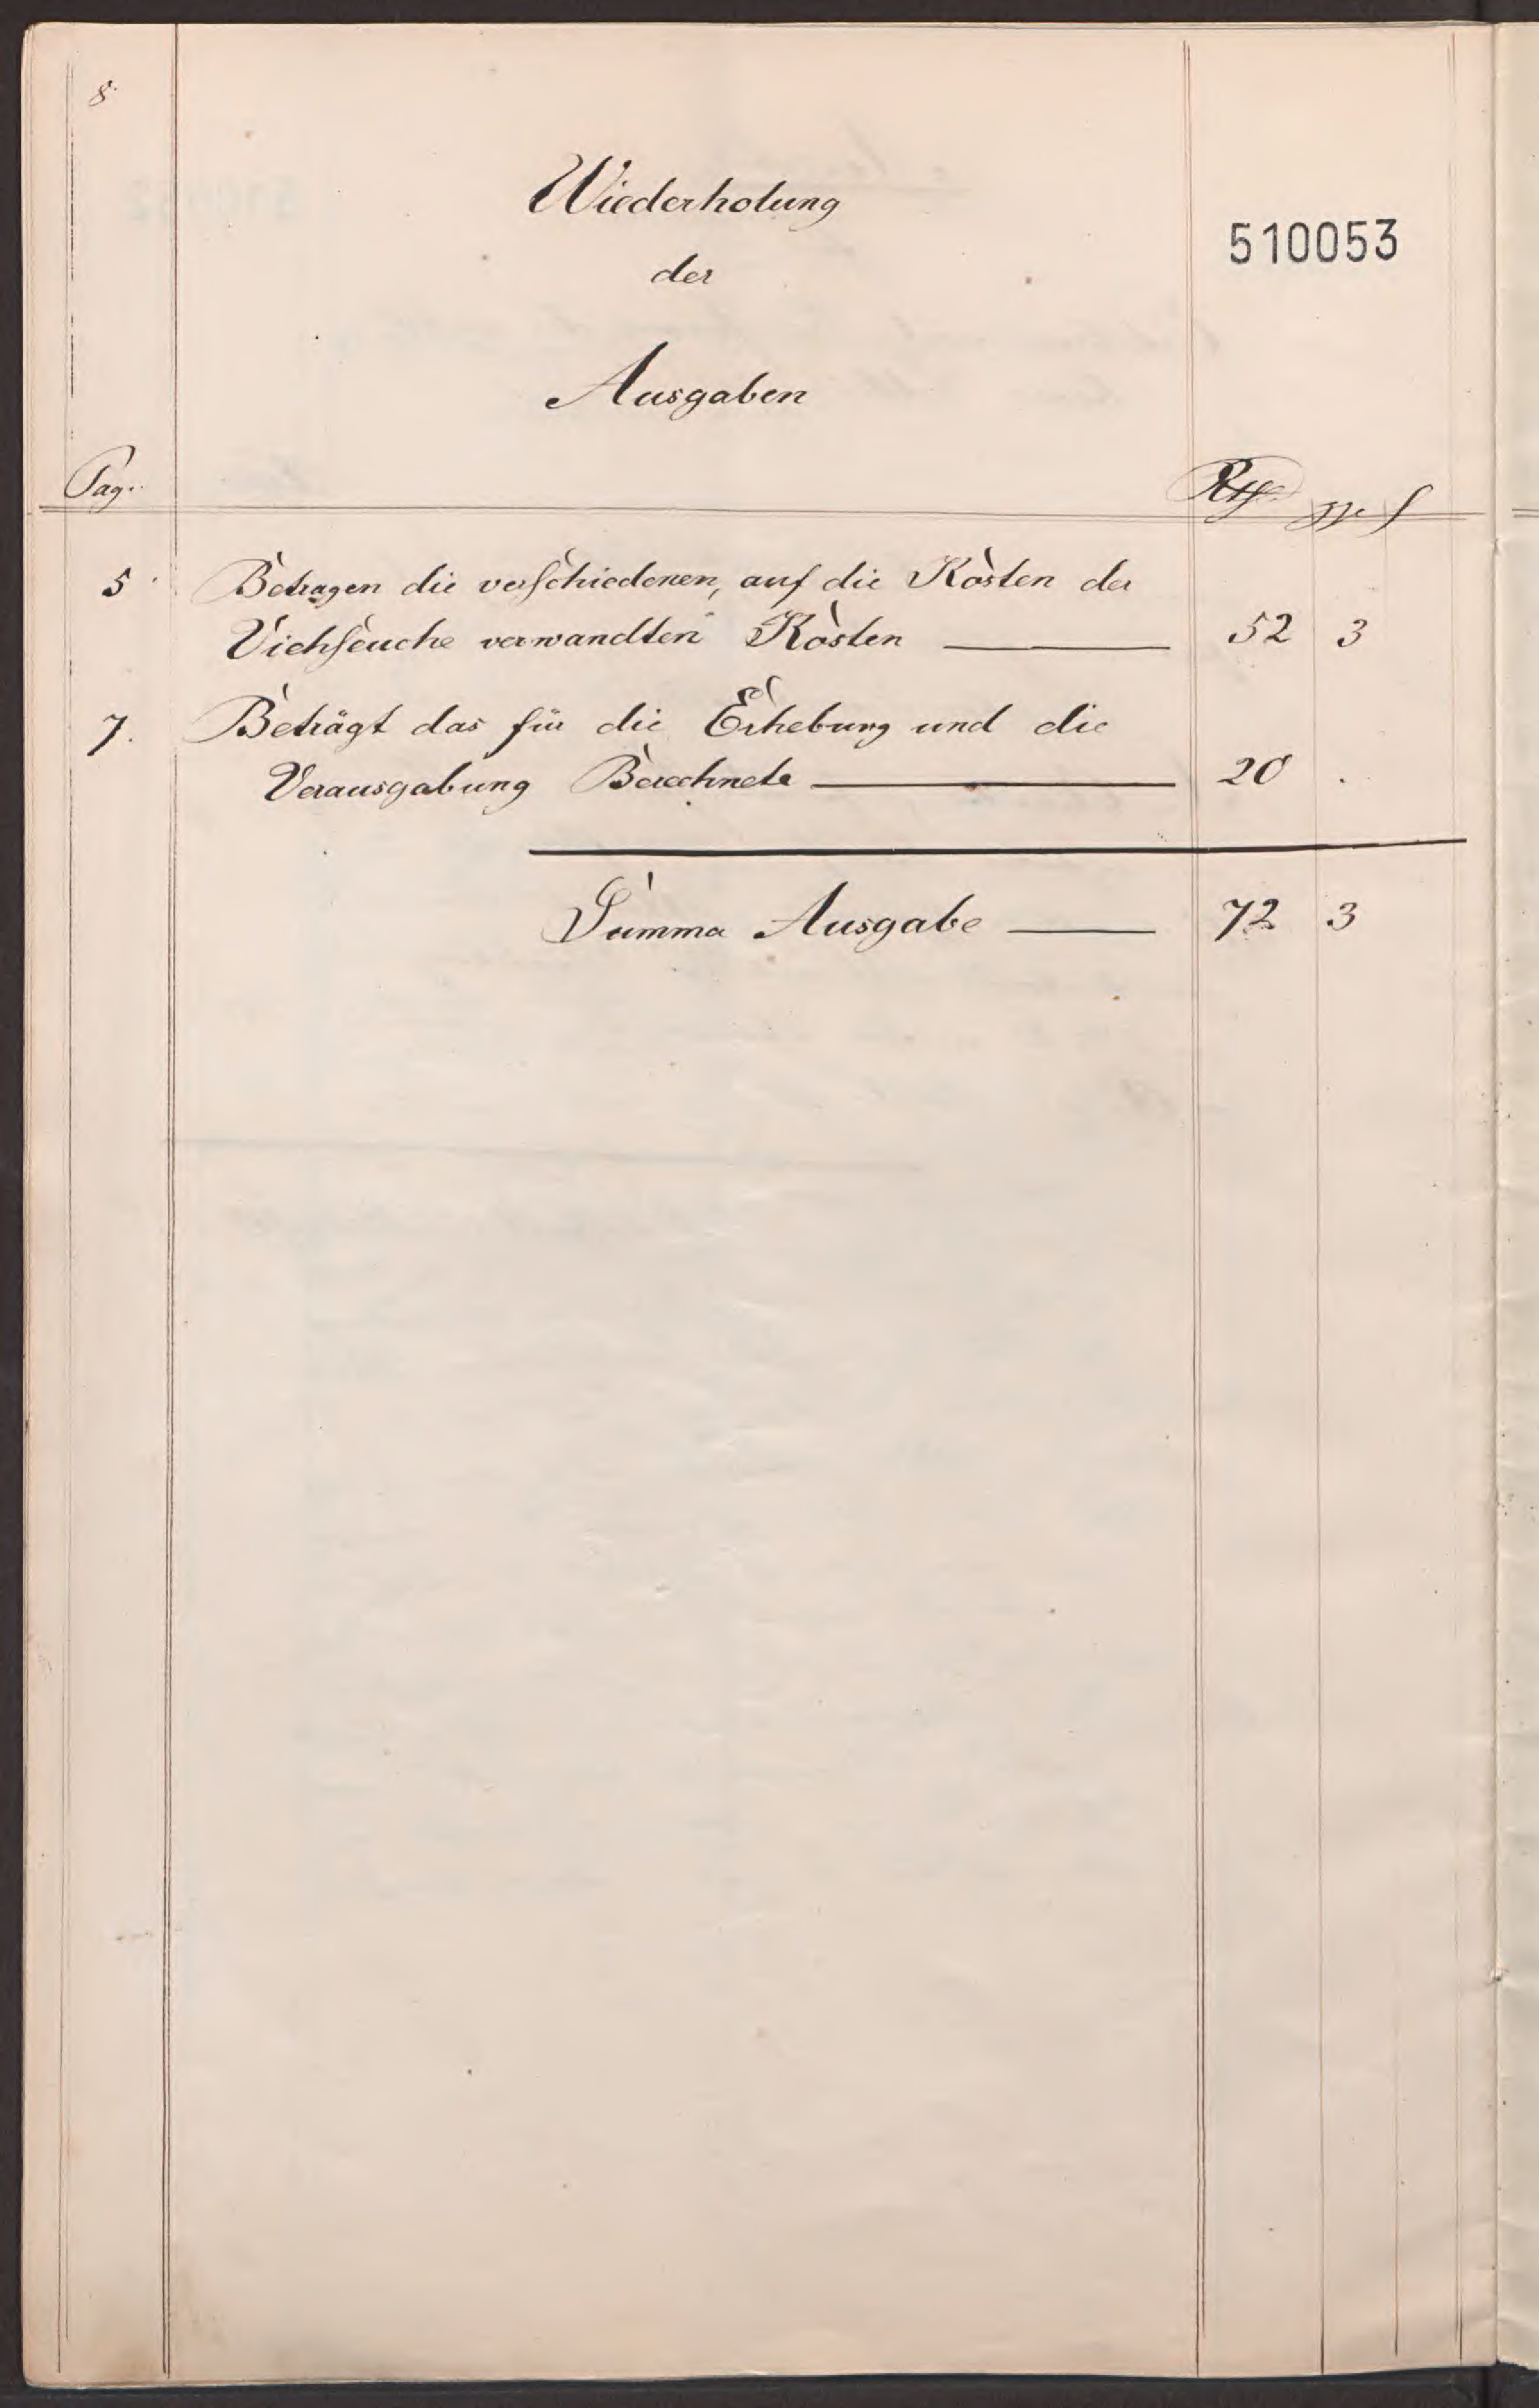 8.
Wiederholung
510053
der
Ausgaben
Pag. ggr
5 Betragen die verschiedenen, auf die Kosten der
Viehseuche verwandten Kosten 52 3
7. Beträgt das für die Erhebung und die
Verausgabung Berechnete 20 .
Summa Ausgabe 72 3